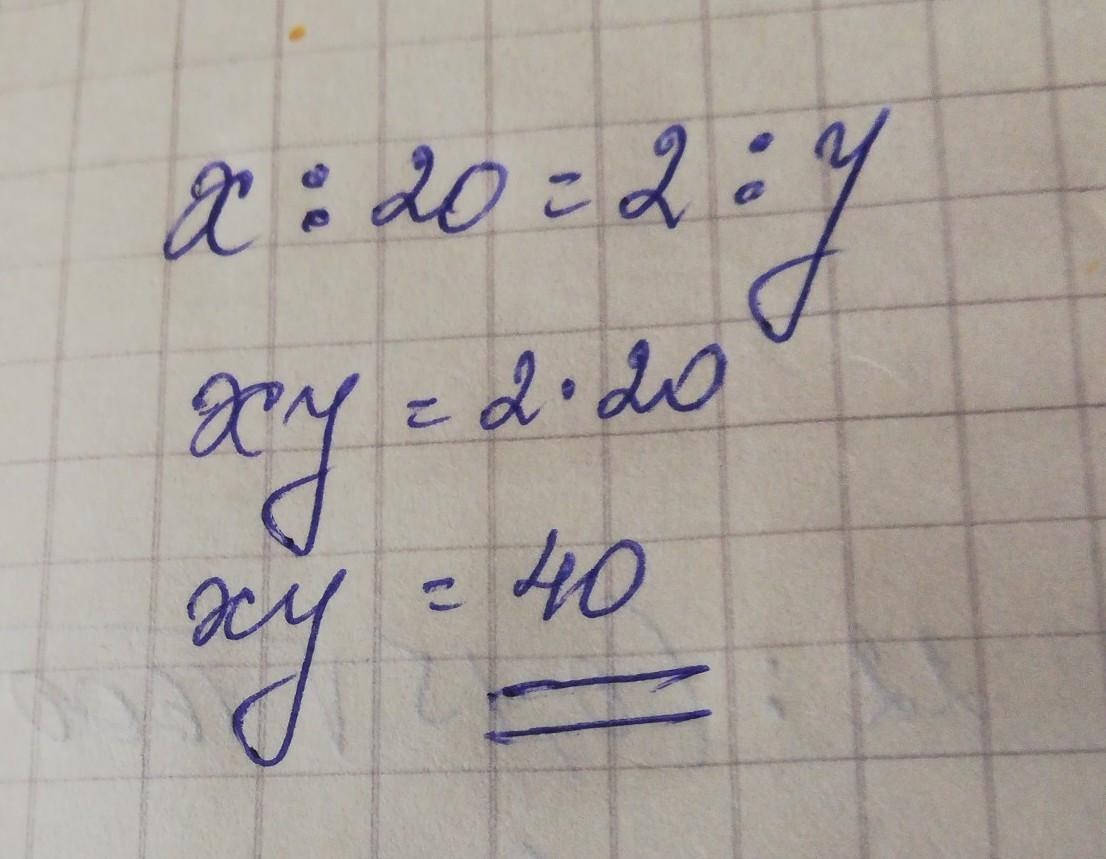 x : 20 = 2 : y
xy = 2 · 20
xy = 40